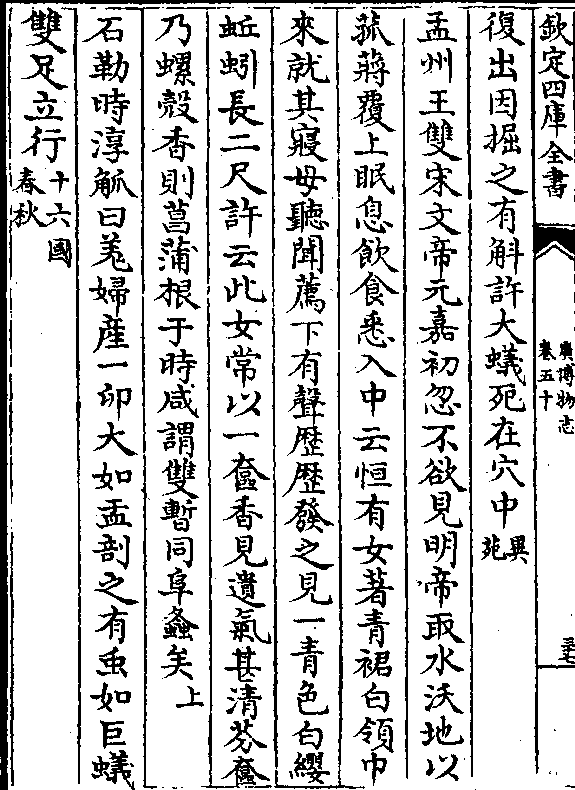 欽定四庫全書
廣博物志
卷五十
三七
復出因掘之有斛許大蟻死在穴中異苑
孟州王雙宋文帝元嘉初忽不欲見明帝取水沃地以
菰蔣覆上眠息飲食悉入中云恒有女著青裙白領巾
來就其寢母聽聞薦下有聲歷歷發之見一青色白纓
蚯蚓長二尺許云此女常以一奩香見遺氣甚清芬奩
乃螺殻香則菖蒲根于時咸謂雙暫同阜螽矣上
石勒時淳觚曰羌婦産一卵大如盂剖之有䖝如巨蟻
雙足立行十六國春秋